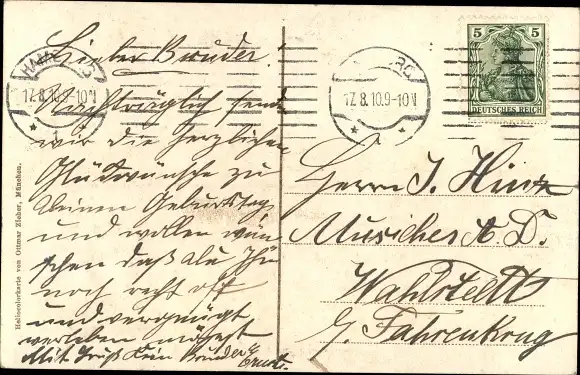 Lieber Bruder!
Nachträglich sende
wir die herzlichen
Glückwünsche zu
Deinen Geburtstag,
und wollen wün-
schen daß Du ihn
noch recht oft
und vergnügt
verleben mögest
Mit Gruß Dein Bruder Ernst.
HAMBURG
17.8.10.9-10V
17.8.10.9-10V
5 5
DEUTSCHES REICH
Herrn J. Hintz
Musicher A. D.
Wahlstedt
b/ Fahrenkrug
Heliocolorkarte von Ottmar Zieher, München.